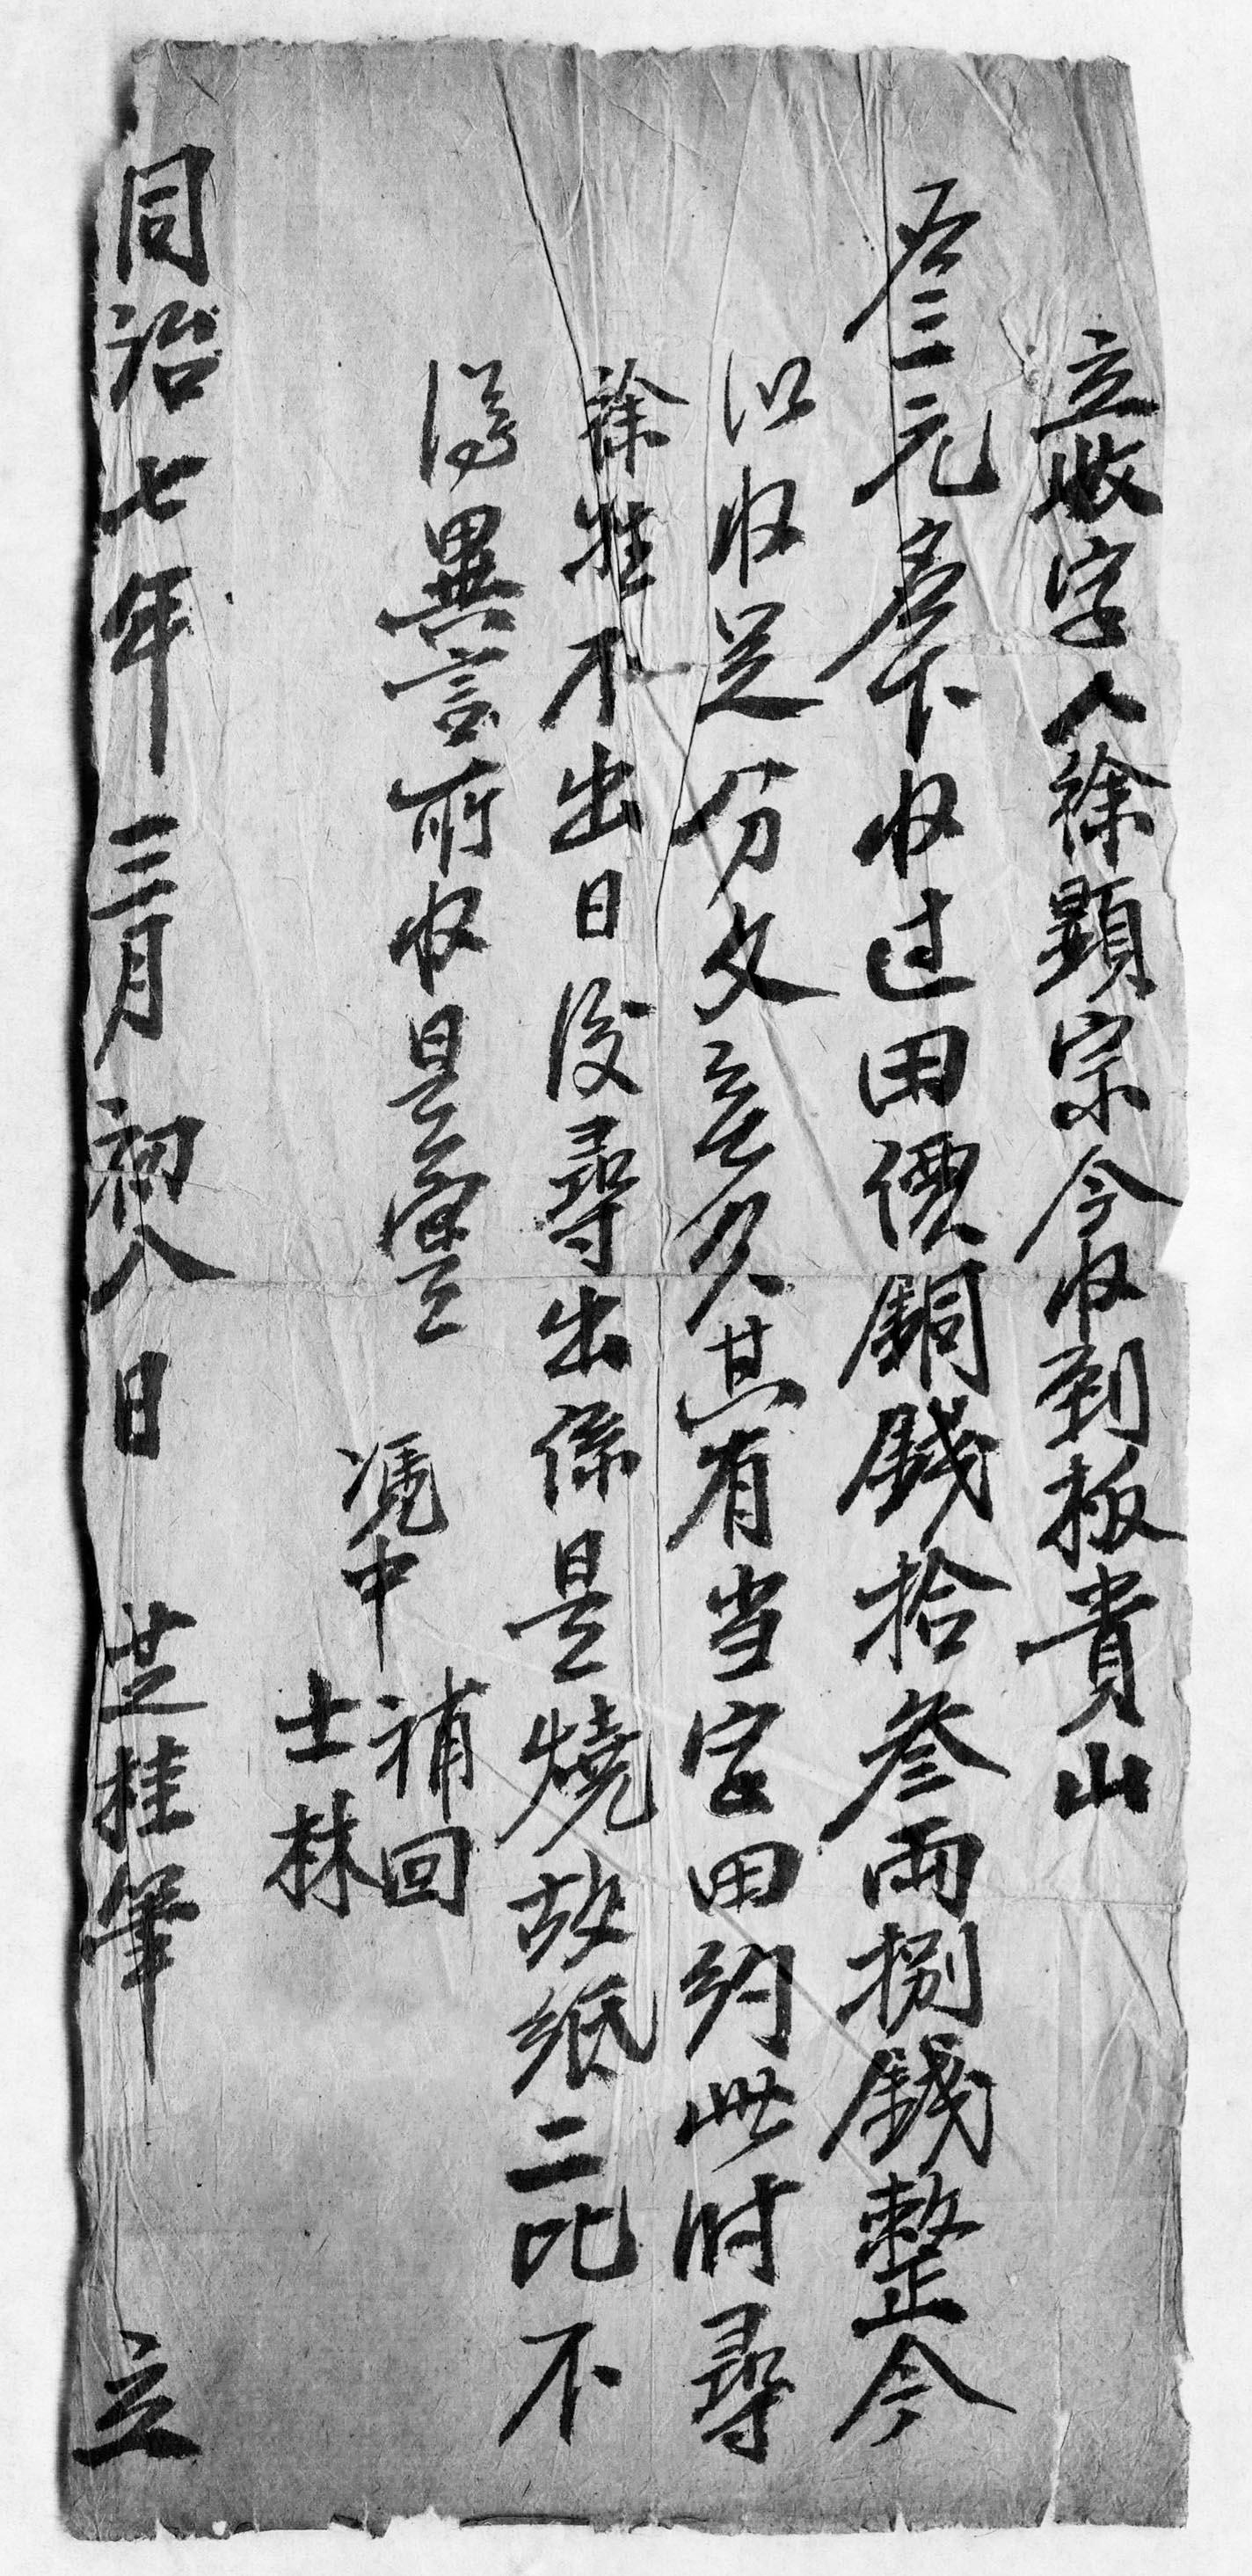 立收字人徐顕宗今收到板貴山
叁元名下收过田價銅錢拾叁両捌錢整今
以收足分文無欠其有当字田約此时尋
徐姓不出日後尋出係是燒故紙二比不
得異言所收是寔
凭中
補回
士林
同治七年三月初八日 芝桂筆 立